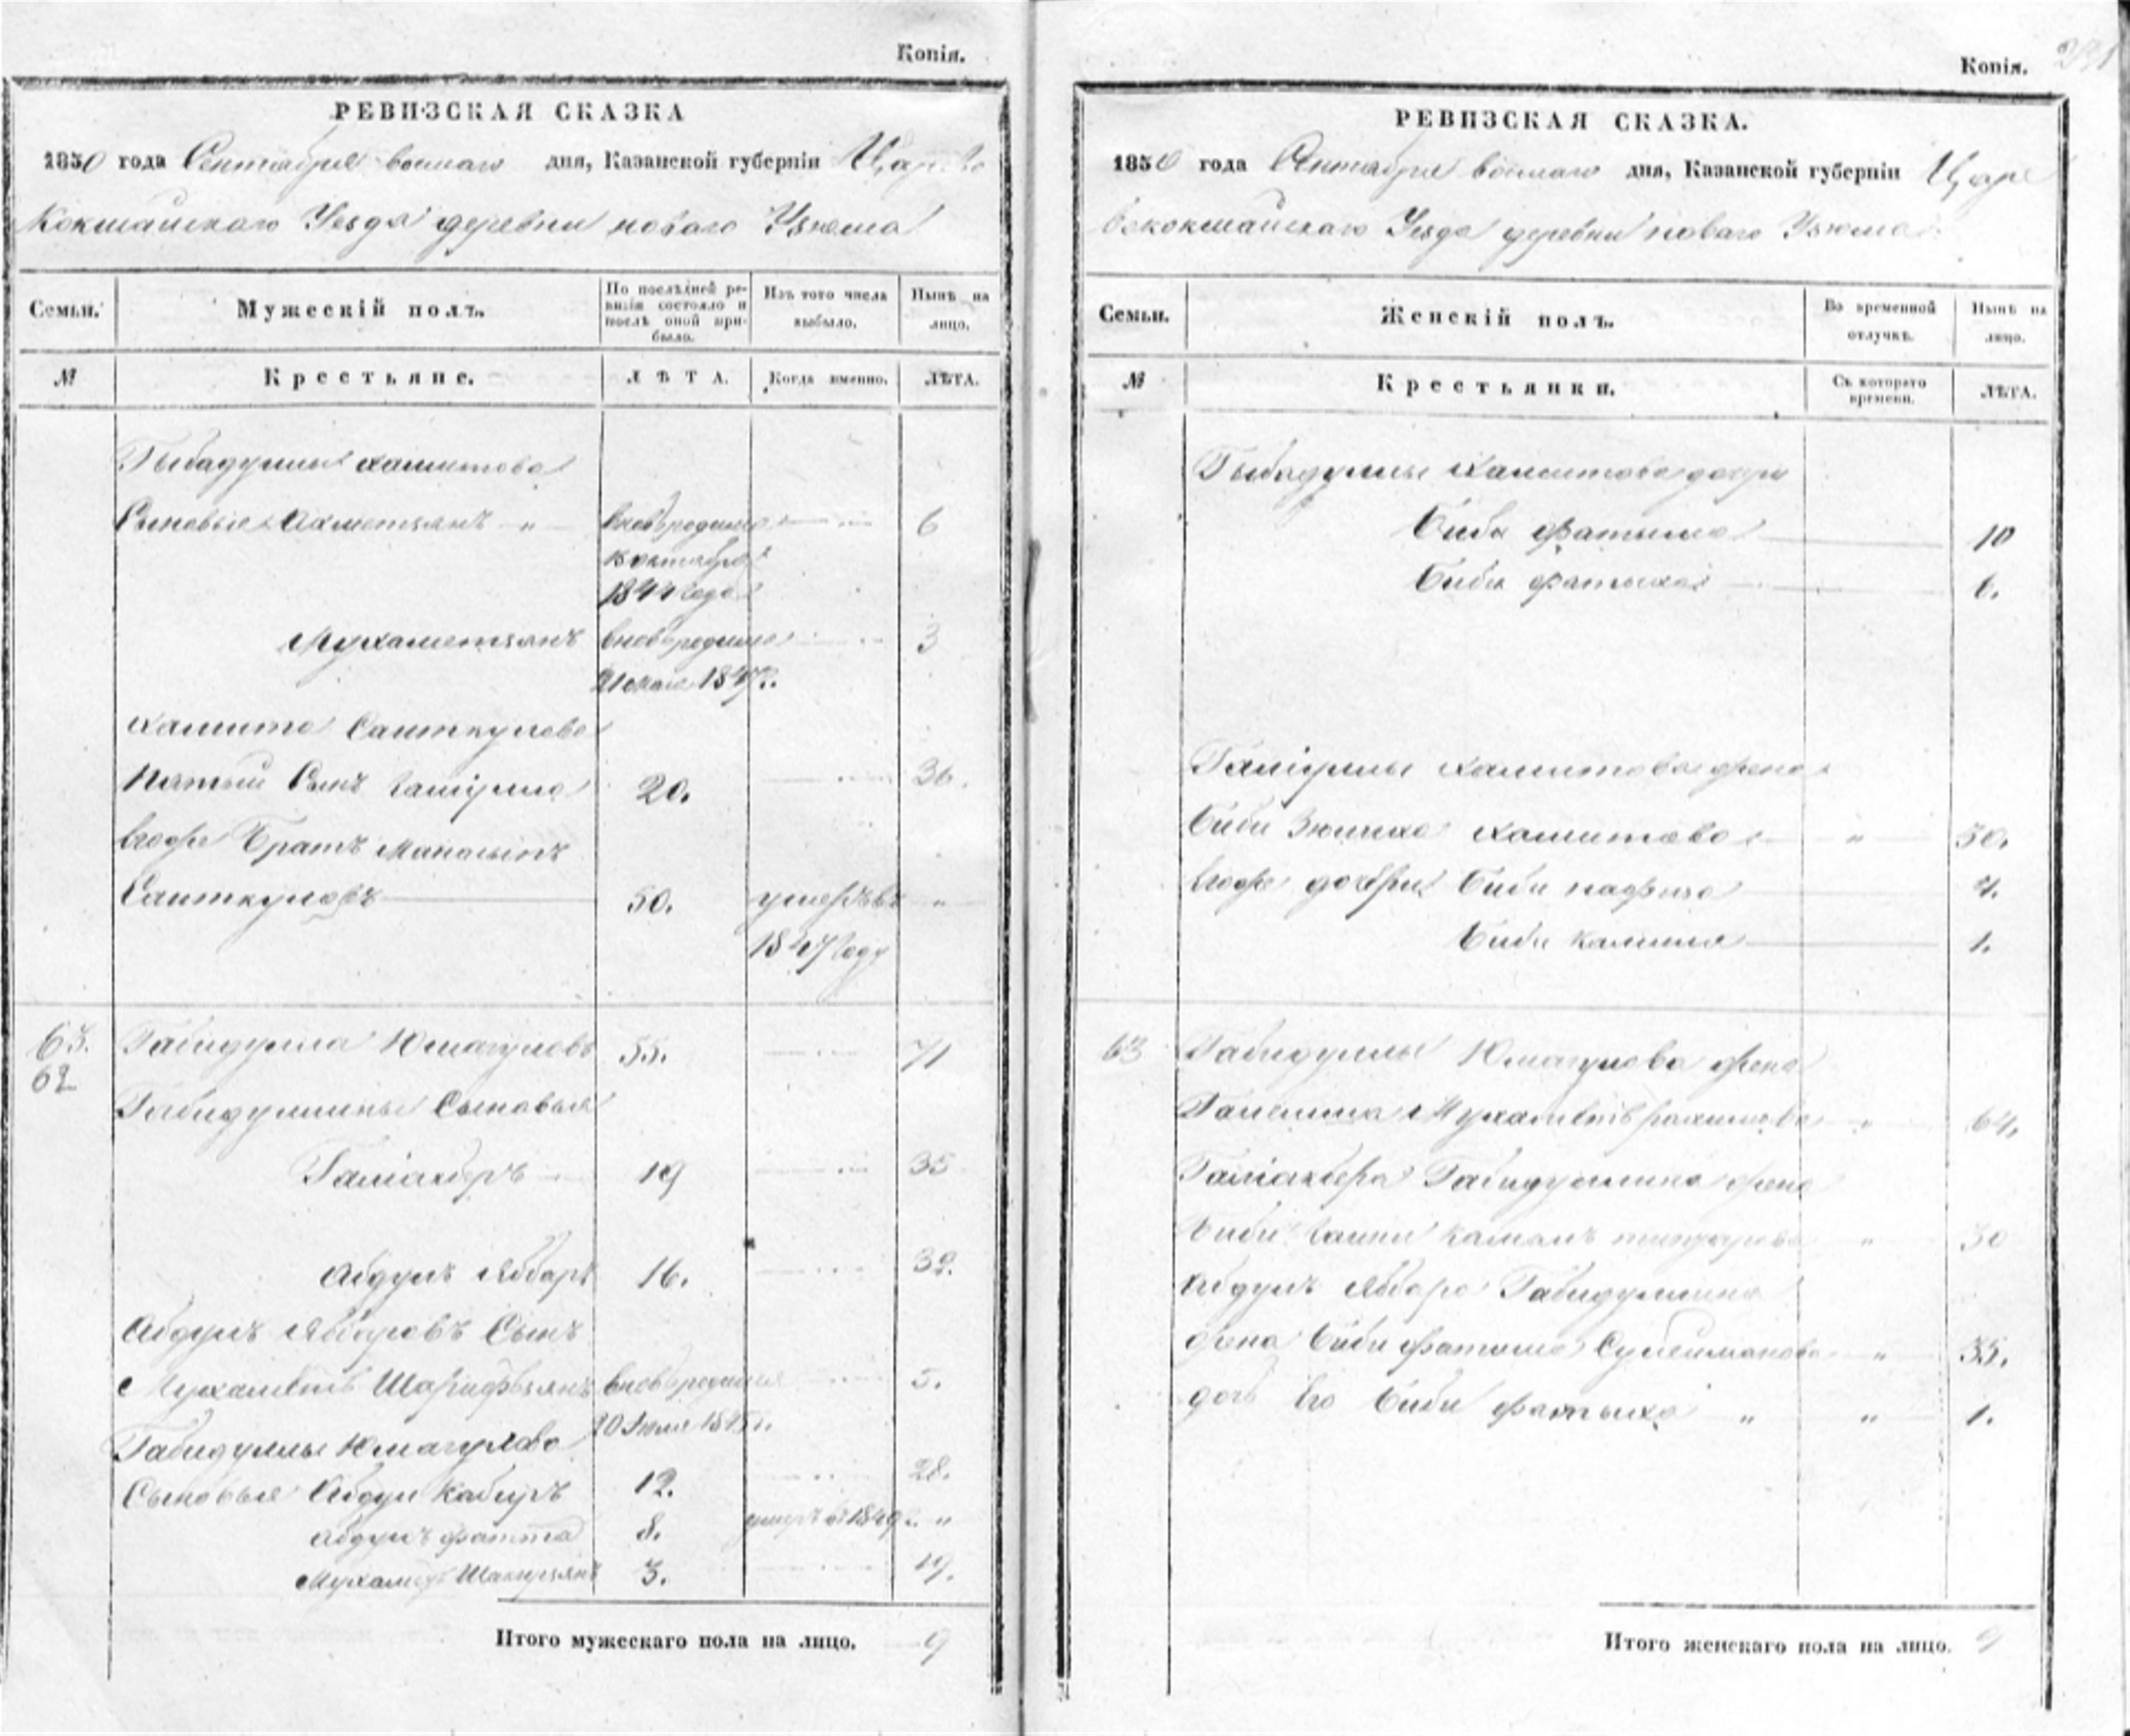 Копія.
РЕВИЗСКАЯ СКАЗКА
1850 года Сентября восмаго дня, Казанской губерніи Царево
Кокшайскаго Уезда деревни новаго Узюма
Семьи. Мужескій полъ. По послѣдней ревизіи состояло и послѣ оной прибыло. Изъ того числа выбыло. Нынѣ на лицо.
№ Крестьяне. ЛѢТА. Когда именно. ЛѢТА.
Гыбадуллы Хамитова
Сыновья Ахметзянъ " вновьродился 6
в октября
1844 года
Мухаметзянъ вновьродился 3
21 мая 1847г.
Хамита Саиткулова
Пятый Сынъ Галіулла 20. 36.
Егоже Братъ Мапасыпъ
Саиткуловъ 50. умеръ въ "
1847 году
63. Габидулла Юмагуловъ 55. 71
62
Габидуллины Сыновья
Галіакберъ 19 35
Абдулъ Яббаръ 16. 32.
Абдулъ Яббаровъ Сынъ
Мухаметъ Шарифзянъ вновьродился 5.
10 Іюля 1845г.
Габидуллы Юмагулова
Сыновья Абдул Кабиръ 12. 28.
Абдулъ фатта 8. умеръ въ 1849г. "
Мухаметъ Шакирзянъ 3. 19.
Итого мужескаго пола на лицо. 9
Копія.
РЕВИЗСКАЯ СКАЗКА.
1850 года Сентября восмаго дня, Казанской губерніи Царе
вококшайскаго Уезда деревни новаго Узюма
Семьи. Женскій полъ. Во временной отлучкѣ. Нынѣ на лицо.
№ Крестьянки. Съ котораго времени. ЛѢТА.
Гыбадуллы Хамитова дочри
Биби фатыма 10
Биби фатыха 6.
Галіуллы Хамитова жена
Биби Зюлиха Хамитова " 30.
Егоже дочери Биби нафиза 4.
Биби Камиля 1.
63 Габидуллы Юмагулова жена
Мухаметърахимова " 64.
Галіакбера Габидуллина жена
Биби " 30
Абдулъ Яббара Габидуллина
жена Биби фатима Сулейманова " 35.
дочь Его Биби фатыха " " 1.
Итого женскаго пола на лицо. 9